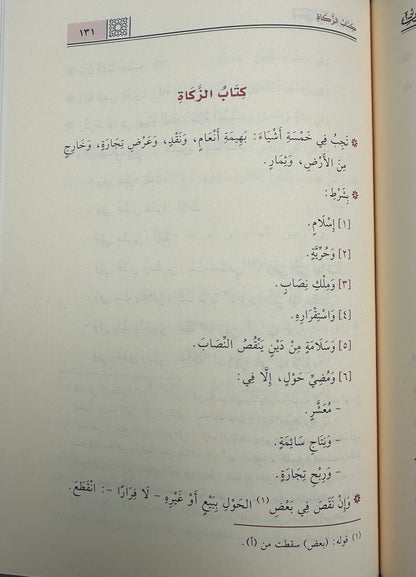 كِتَابُ الزَّكَاةِ
١٣١
كِتَابُ الزَّكَاةِ
* تَجِبُ فِي خَمْسَةِ أَشْيَاءَ: بَهِيمَةِ أَنْعَامٍ، وَنَقْدٍ، وَعَرْضِ تِجَارَةٍ، وَخَارِجٍ
مِنَ الأَرْضِ، وَثِمَارٍ.
* بِشَرْطِ:
[١] إِسْلَامٍ.
[٢] وَحُرِّيَّةٍ.
[٣] وَمِلْكِ نِصَابٍ.
[٤] وَاسْتِقْرَارِهِ.
[٥] وَسَلَامَةٍ مِنْ دَيْنٍ يَنْقُصُ النِّصَابَ.
[٦] وَمُضِيِّ حَوْلٍ، إِلَّا فِي:
- مُعَشَّرٍ.
- وَنِتَاجِ سَائِمَةٍ.
- وَرِبْحِ تِجَارَةٍ.
* وَإِنْ نَقَصَ فِي بَعْضِ(١) الحَوْلِ بِبَيْعٍ أَوْ غَيْرِهِ - لَا فِرَارًا -: انْقَطَعَ.
(١) قوله: (بعض) سقطت من (أ).